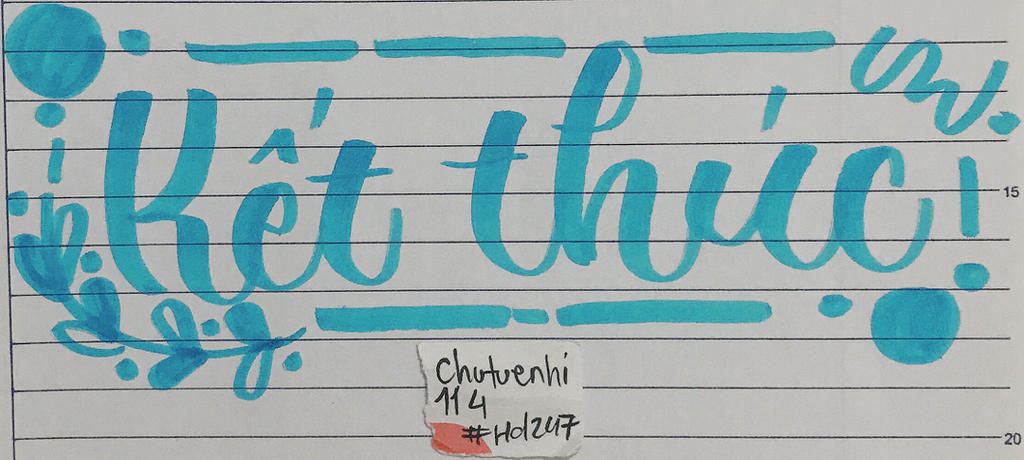 Kết thúc
15
chutuenhi
114
#Hol247
20